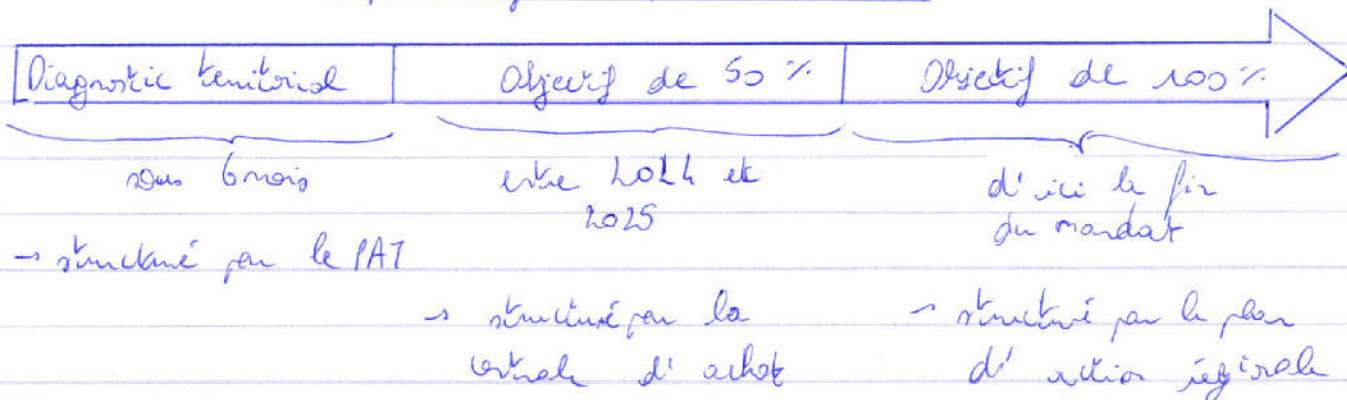 Diagnostic territorial
Objectif de 50 %
Objectif de 100 %
sous 6 mois
entre 2024 et
2025
d'ici la fin
du mandat
→ structuré par le PAT
→ structuré par la
centrale d'achat
→ structuré par le plan
d'action régionale